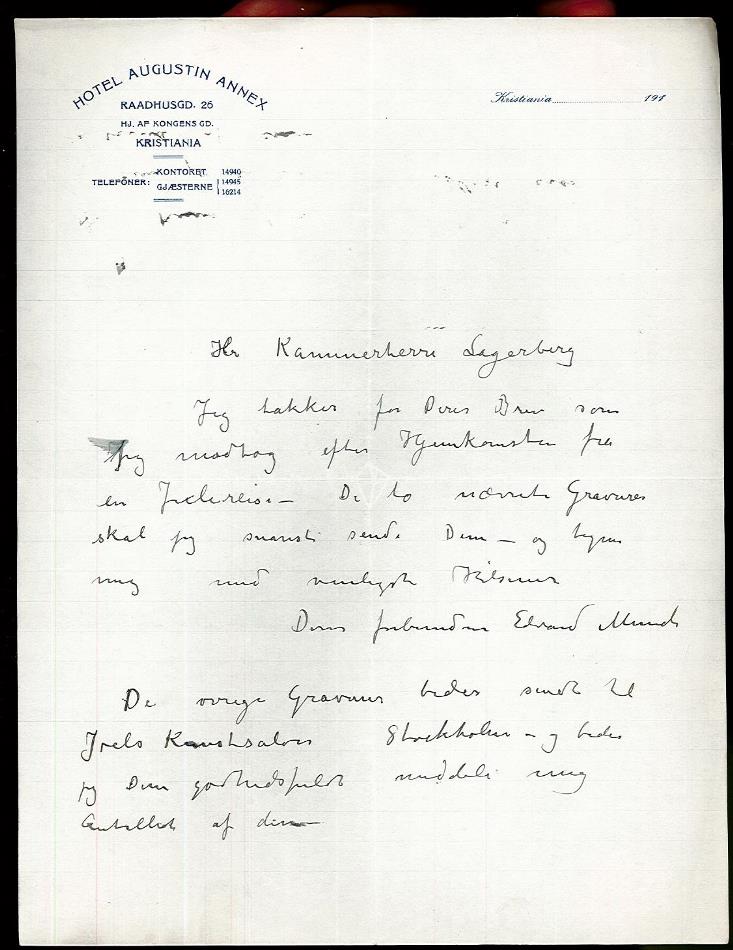 HOTEL AUGUSTIN ANNEX
RAADHUSGD. 26
HJ. AF KONGENS GD.
KRISTIANIA
TELEFONER: KONTORET 14940
GJÆSTERNE 14945
16214
Kristiania 191
Hr Kammerherre Lagerberg
Jeg takker for Deres Brev som
jeg modtog efter Hjemkomsten fra
en Julereise – De to nævnte Gravures
skal jeg snarest sende Dem – og tegner
mig med venligste Hilsener
Deres forbundne Edvard Munch
De øvrige Gravurer bedes sendt til
Joels Kunstsalon Stockholm – og bedes
jeg Dem godhedsfuldt meddele mig
Antallet af dem